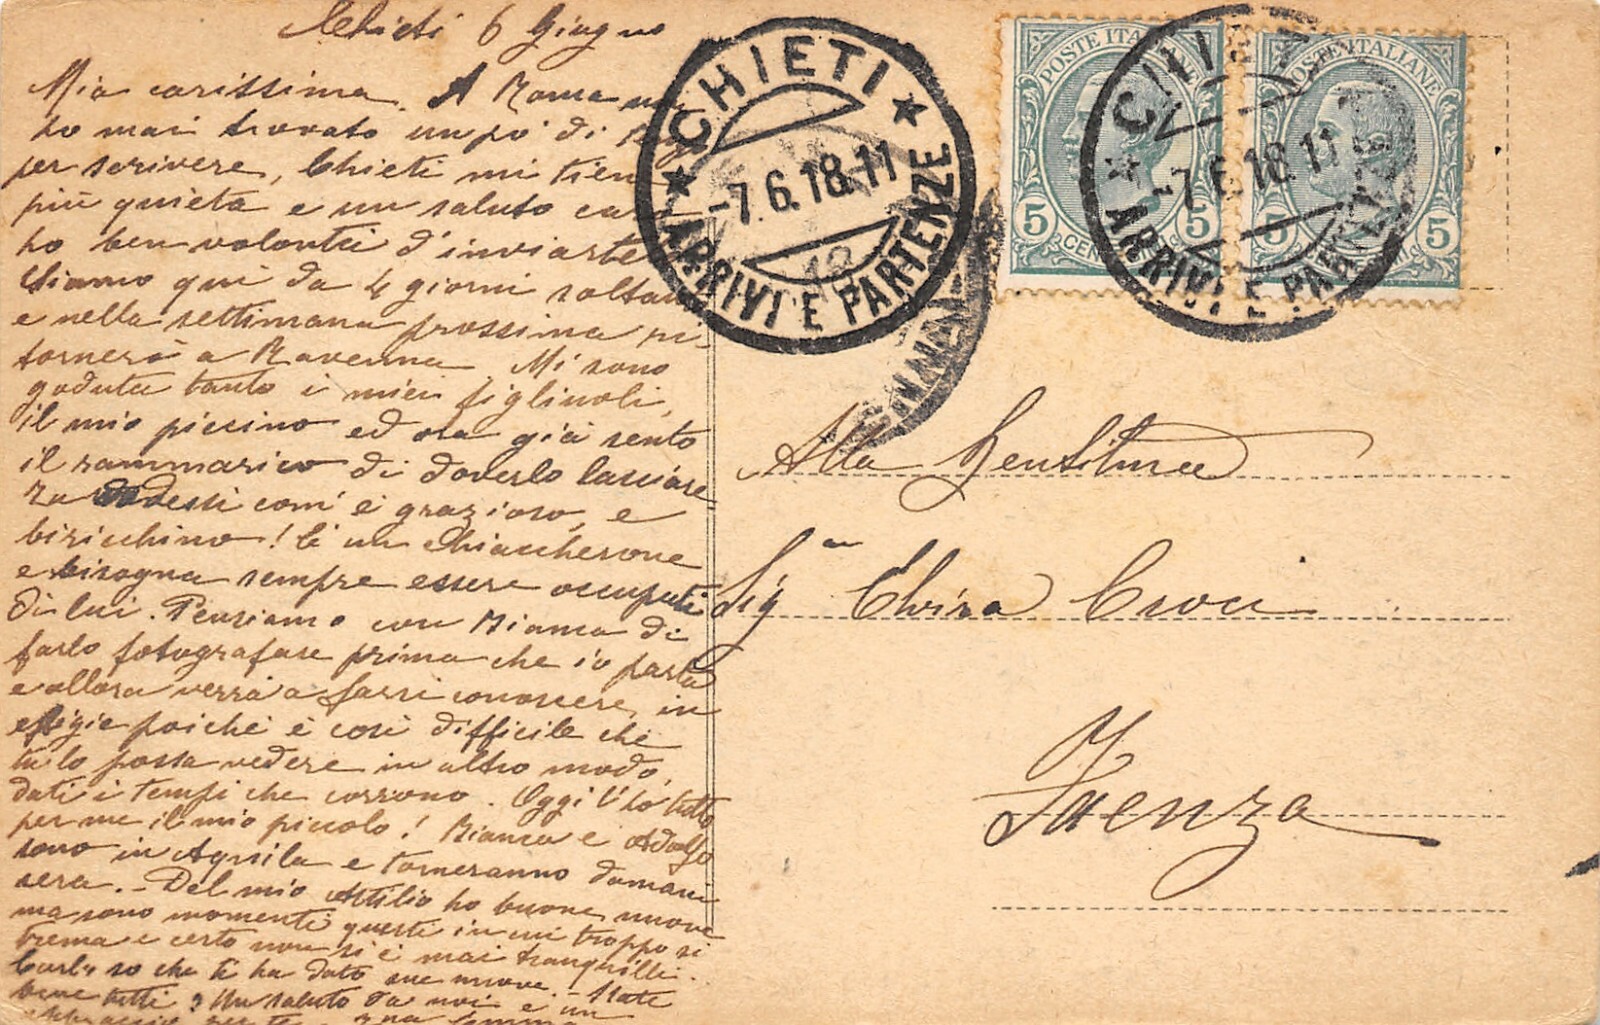 Chieti 6 Giugno
Mia carissima. A Roma non
ho mai trovato un po' di
per scrivere, Chieti mi tiene
più quieta e un saluto
ho ben volontà d'inviarte
Siamo quì da 4 giorni soltan
e nella settimana prossima ri-
tornerò a Ravenna Mi sono
goduta tanto i miei figliuoli,
il mio piccino ed ora già sento
il rammarico di doverlo lasciare
vedessi com' è grazioso, e
biricchino! È un chiaccherone
e bisogna sempre essere occupati
di lui. Pensiamo con Bianca di
farlo fotografare prima che io parta
e allora verrà a farsi conoscere, in
effigie poichè è così difficile che
tu lo possa vedere in altro modo,
dati i tempi che corrono. Oggi l'ho tutto
per me il mio piccolo! Bianca e Adolfo
sono in Aquila e torneranno domani
sera. - Del mio Attilio ho buone nuove
ma sono momenti questi in cui troppo si
trema e certo non si è mai tranquilli.
Carlo so che ti ha dato sue nuove. - State
bene tutti? Un saluto da noi e un
abbraccio per te
CHIETI
-7.6.18.11
ARRIVI E PARTENZE
12
POSTE ITALIANE
5 CENTESIMI 5
POSTE ITALIANE
5 CENTESIMI 5
CHIETI
-7.6.18.11
ARRIVI E PARTENZE
Alla Gentilma
Sig.na Elvira Croci
Faenza